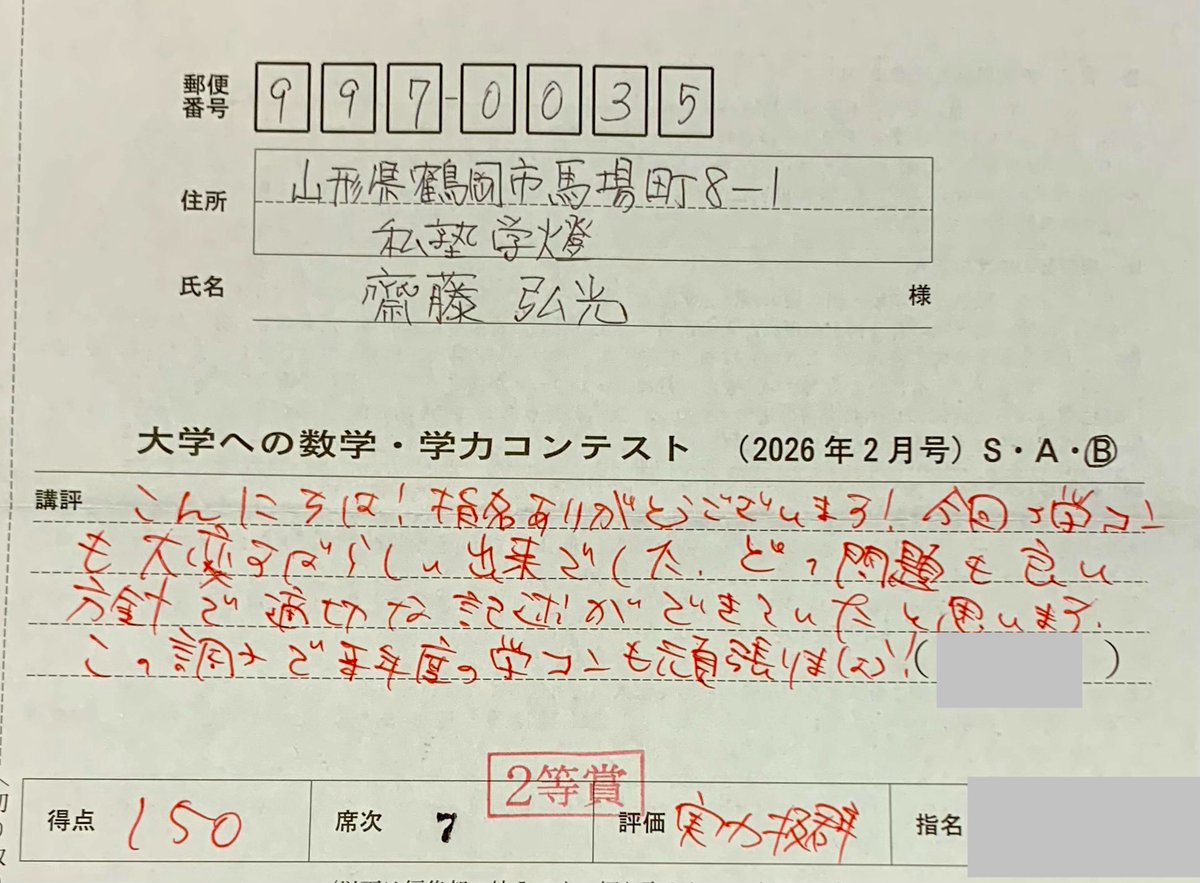 郵便番号 997-0035
住所 山形県鶴岡市馬場町8-1
私塾学燈
氏名 齋藤 弘光 様
大学への数学・学力コンテスト (2026年2月号) S・A・Ⓑ
講評 こんにちは!指名ありがとうございます!今回の学コン
も大変すばらしい出来でした。どの問題も良い
方針で適切な記述ができていたと思います。
この調子で来年度の学コンも頑張りましょう!( )
2等賞
得点 150 席次 7 評価 実力抜群 指名